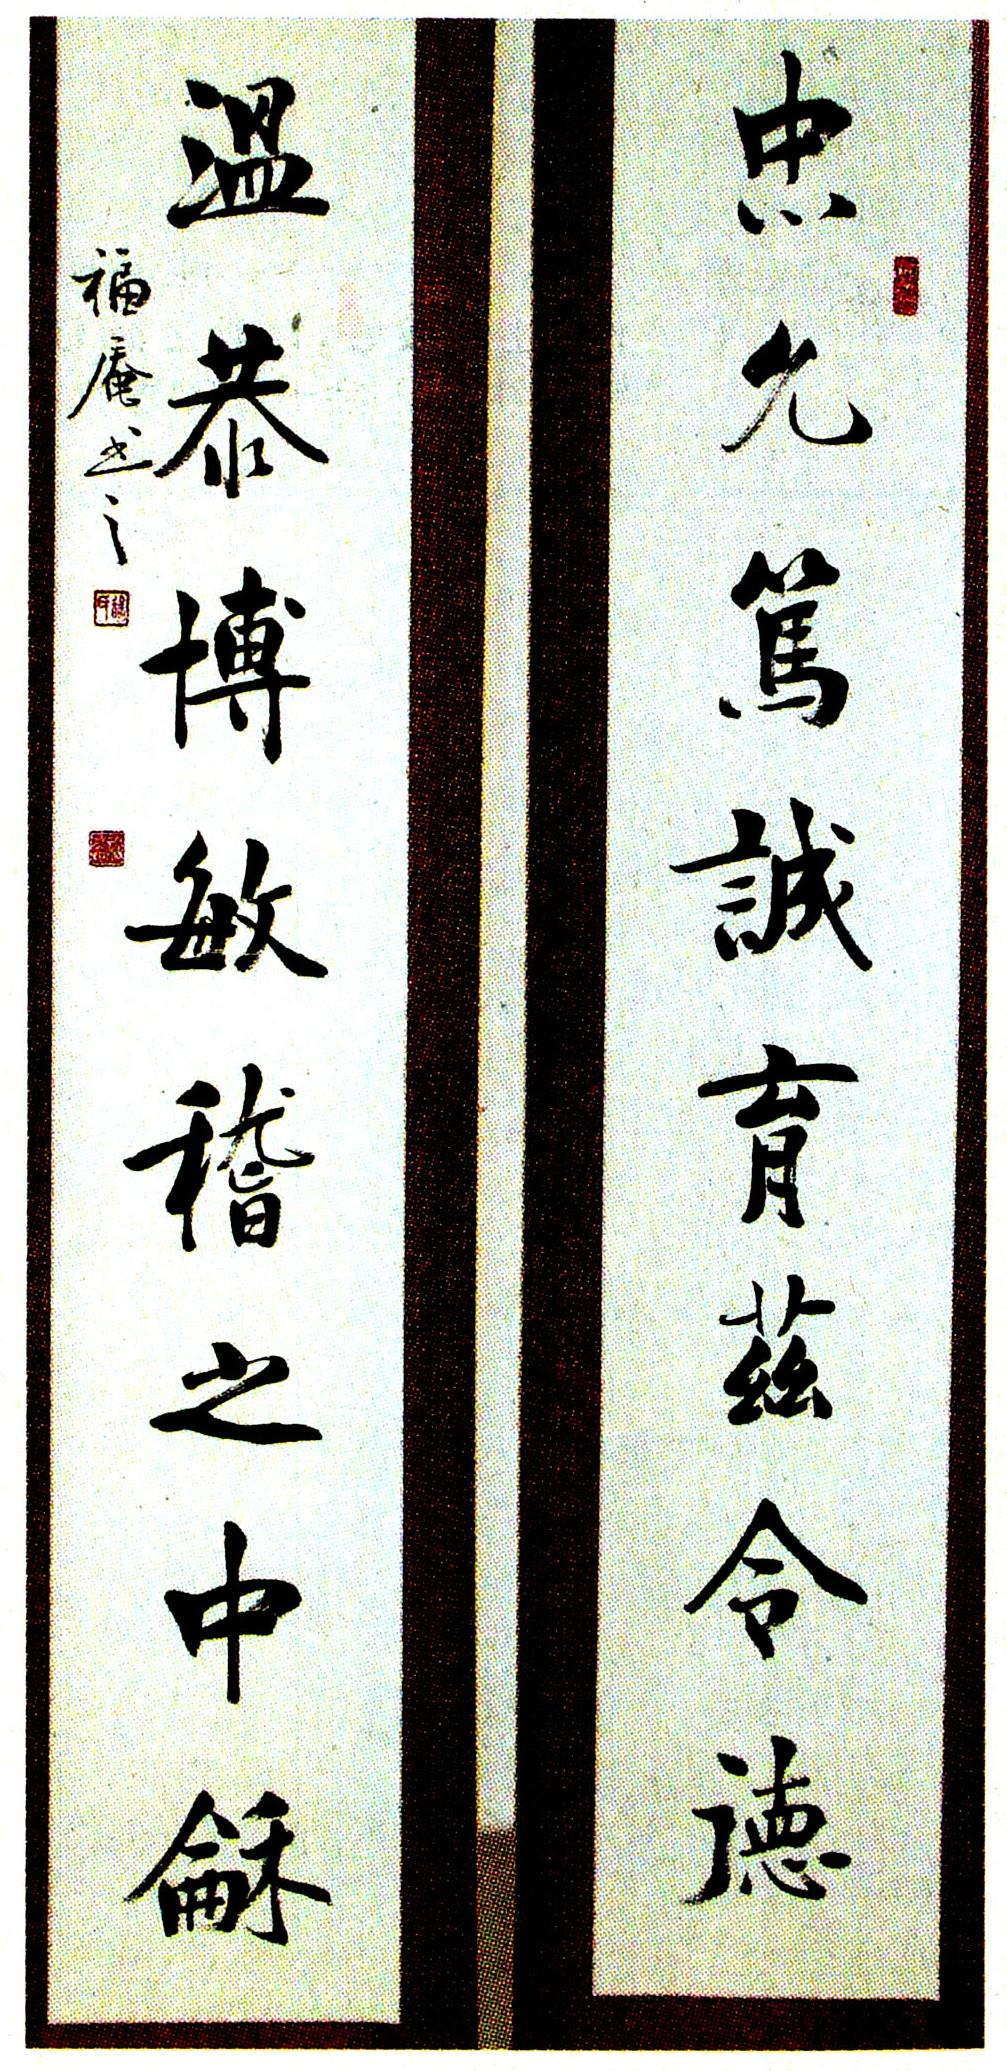 忠允篤誠育茲令德
溫恭博敏稽之中龢
福庵书之